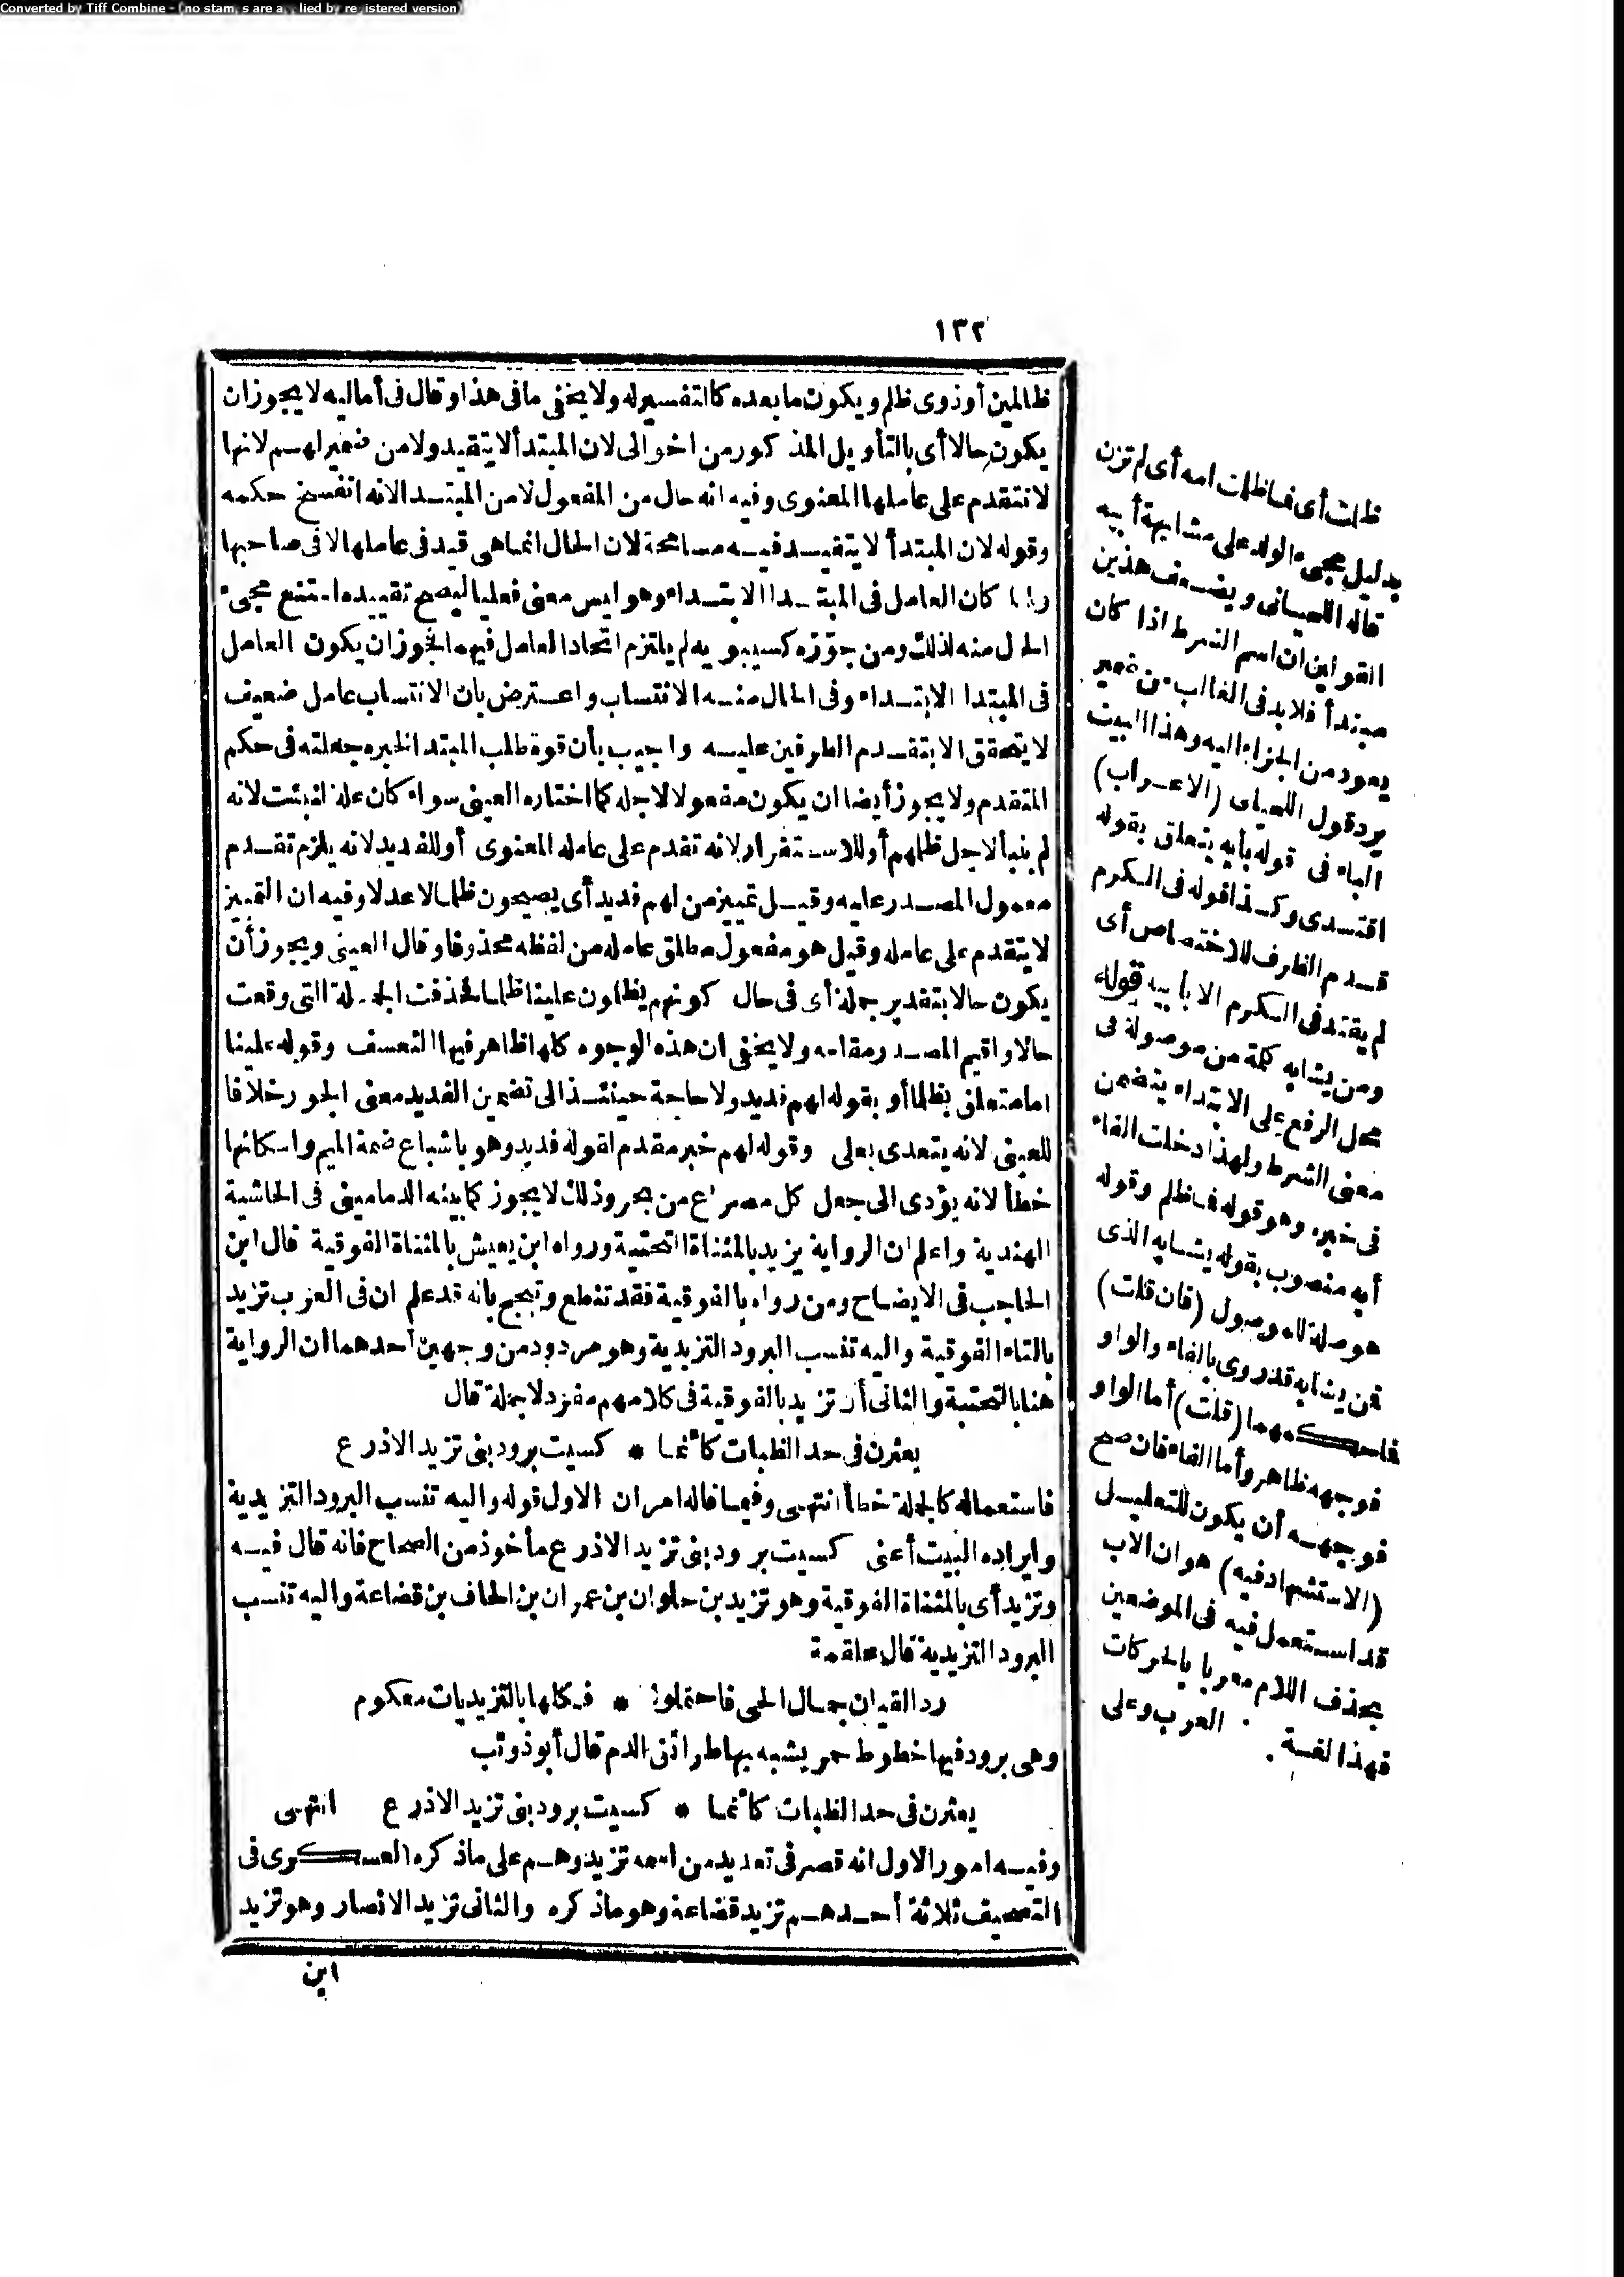 Converted by Tiff Combine - (no stamps are applied by registered version)
١٣٢
ظالمين أو ذوى ظلم و يكون ما بعده كالتفسير له ولا يخفى ما فى هذا وقال فى أماليه لا يجوز ان
يكون حالا أى بالتأويل المذكور من اخوالى لان المبتدأ لا يتقيد ولا من ضمير لهم لانها
لا تتقدم على عاملها المعنوى وفيه انه حال من المفعول لا من المبتدا لانه انفسخ حكمه
وقوله لان المبتدأ لا يتقيد فيه مسامحة لان الحال انما هى قيد فى عاملها لا فى صاحبها
ولما كان العامل فى المبتدا الابتداء وهو ليس معنى فعليا ليصح تقييده امتنع مجىء
الحال منه لذلك ومن جوّزه كسيبويه لم يلتزم اتحاد العامل فيهما فجوز ان يكون العامل
فى المبتدا الابتداء وفى الحال منه الانتساب واعترض بان الانتساب عامل ضعيف
لا يتحقق الا بتقدم الطرفين عليه واجيب بأن قوة طلب المبتدا لخبره جعلته فى حكم
المتقدم ولا يجوز أيضا ان يكون مفعولا لاجله كما اختاره العينى سواء كان علة لنبئت لانه
لم ينبأ لاجل ظلمهم أو للاستقرار لانه تقدم على عامله المعنوى أو للفديد لانه يلزم تقدم
معمول المصدر عليه وقيل تمييز من لهم فديد أى يصيحون ظلما لا عدلا وفيه ان التمييز
لا يتقدم على عامله وقيل هو مفعول مطلق عامله من لفظه محذوفا وقال العينى ويجوز أن
يكون حالا بتقدير جملة أى فى حال كونهم يظلمون علينا ظلما فحذفت الجملة التى وقعت
حالا واقيم المصدر مقامه ولا يخفى ان هذه الوجوه كلها ظاهر فيها التعسف وقوله علينا
اما متعلق بظلما أو بقوله لهم فديد ولا حاجة حينئذ الى تضمين الفديد معنى الجور خلافا
للعينى لانه يتعدى بعلى وقوله لهم خبر مقدم لقوله فديد وهو باشباع ضمة الميم واسكانها
خطأ لانه يؤدى الى جعل كل مصراع من بحر وذلك لا يجوز كما بينه الدمامينى فى الحاشية
الهندية واعلم ان الرواية يزيد بالمثناة التحتية ورواه ابن يعيش بالمثناة الفوقية قال ابن
الحاجب فى الايضاح ومن رواه بالفوقية فقد تنطع وتبجح بانه قد علم ان فى العرب تزيد
بالتاء الفوقية واليه تنسب البرود التزيدية وهو مردود من وجهين أحدهما ان الرواية
هنا بالتحتية والثانى أن تزيد بالفوقية فى كلامهم مفرد لا جملة قال
يعثرن فى حد الظبات كأنما * كسيت برود بنى تزيد الاذرع
فاستعماله كالجملة خطأ انتهى وفيما قاله امران الاول قوله واليه تنسب البرود التزيدية
وايراده البيت أعنى كسيت برود بنى تزيد الاذرع مأخوذ من الصحاح فانه قال فيه
وتزيد أى بالمثناة الفوقية وهو تزيد بن حلوان بن عمران بن الحاف بن قضاعة واليه تنسب
البرود التزيدية قال علقمة
رد القيان جمال الحى فاحتملوا * فكلها بالتزيديات معكوم
وهى برود فيها خطوط حمر يشبه بها طرائق الدم قال أبو ذؤيب
يعثرن فى حد الظبات كأنما * كسيت برود بنى تزيد الاذرع انتهى
وفيه امور الاول انه قصر فى تعديد من اسمه تزيد وهم على ما ذكره العسكرى فى
التصحيف ثلاثة أحدهم تزيد قضاعة وهو ما ذكره والثانى تزيد الانصار وهو تزيد
ابن
ظلمت أى فما ظلمت امه أى لم تزن
بدليل مجىء الولد على مشابهة أبيه
قاله اللحيانى ويضعف هذين
القولين ان اسم الشرط اذا كان
مبتدأ فلا بد فى الغالب من ضمير
يعود من الجزاء اليه وهذا البيت
يرد قول اللحيانى (الاعراب)
الباء فى قوله بأبه يتعلق بقوله
اقتدى وكذا قوله فى الكرم
قدم الظرف للاختصاص أى
لم يقتد فى الكرم الا بابيه قوله
ومن يشابه كلمة من موصولة فى
محل الرفع على الابتداء يتضمن
معنى الشرط ولهذا دخلت الفاء
فى خبره وهو قوله فما ظلم وقوله
أبه منصوب بقوله يشابه الذى
هو صلة للموصول (فان قلت)
فمن يشابه قد روى بالفاء والواو
فما حكمهما (قلت) أما الواو
فوجهه ظاهر وأما الفاء فان صح
فوجهه أن يكون للتعليل
(الاستشهاد فيه) هو ان الاب
قد استعمل فيه فى الموضعين
بحذف اللام معربا بالحركات
فهذا لغة . العرب وعلى